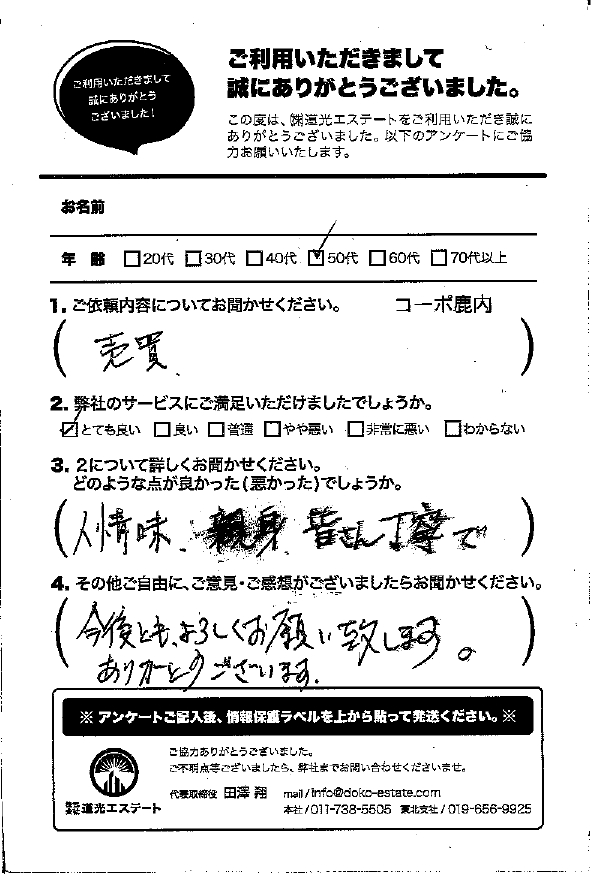 ご利用いただきまして
誠にありがとう
ございました！
ご利用いただきまして
誠にありがとうございました。
この度は、㈱道光エステートをご利用いただき誠に
ありがとうございました。以下のアンケートにご協
力お願いいたします。
お名前
年 齢 □20代 □30代 □40代 ☑50代 □60代 □70代以上
1. ご依頼内容についてお聞かせください。 コーポ鹿内
(売買、)
2. 弊社のサービスにご満足いただけましたでしょうか。
☑とても良い □良い □普通 □やや悪い □非常に悪い □わからない
3. 2について詳しくお聞かせください。
どのような点が良かった(悪かった)でしょうか。
(人情味、親身、皆さん丁寧で)
4. その他ご自由に、ご意見・ご感想がございましたらお聞かせください。
(今後とも、よろしくお願い致します。
ありがとうございます.)
※ アンケートご記入後、情報保護ラベルを上から貼って発送ください。※
ご協力ありがとうございました。
ご不明点等ございましたら、弊社までお問い合わせくださいませ。
代表取締役 田澤 翔 mail/info@doko-estate.com
株式会社道光エステート 本社/011-738-5505 東北支社/019-656-9925